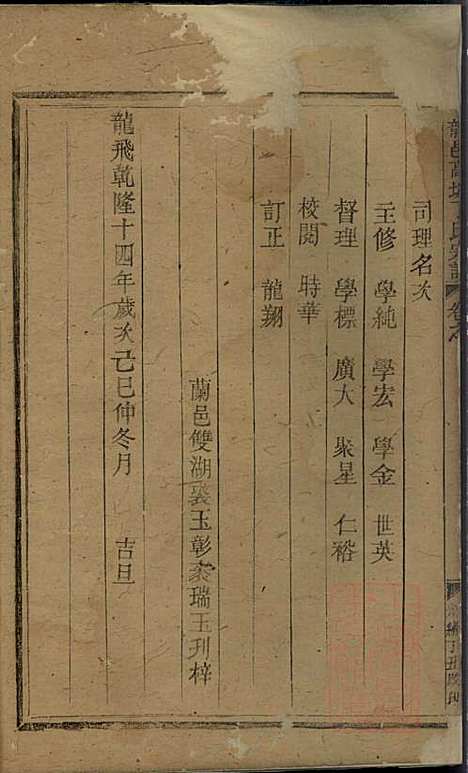 司理名次
主修 學純 學宏 學金 世英
督理 學標 廣大 聚星 仁裕
校閱 時華
訂正 龍翔
蘭邑雙湖裘玉彰 裘瑞玉刋梓
龍飛乾隆十四年歲次己巳仲冬月 吉旦